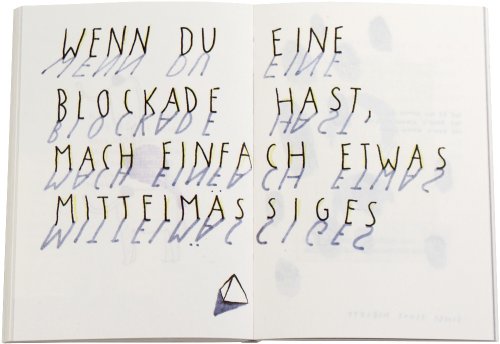 WENN DU EINE
BLOCKADE HAST,
MACH EINFACH ETWAS
MITTELMÄSSIGES